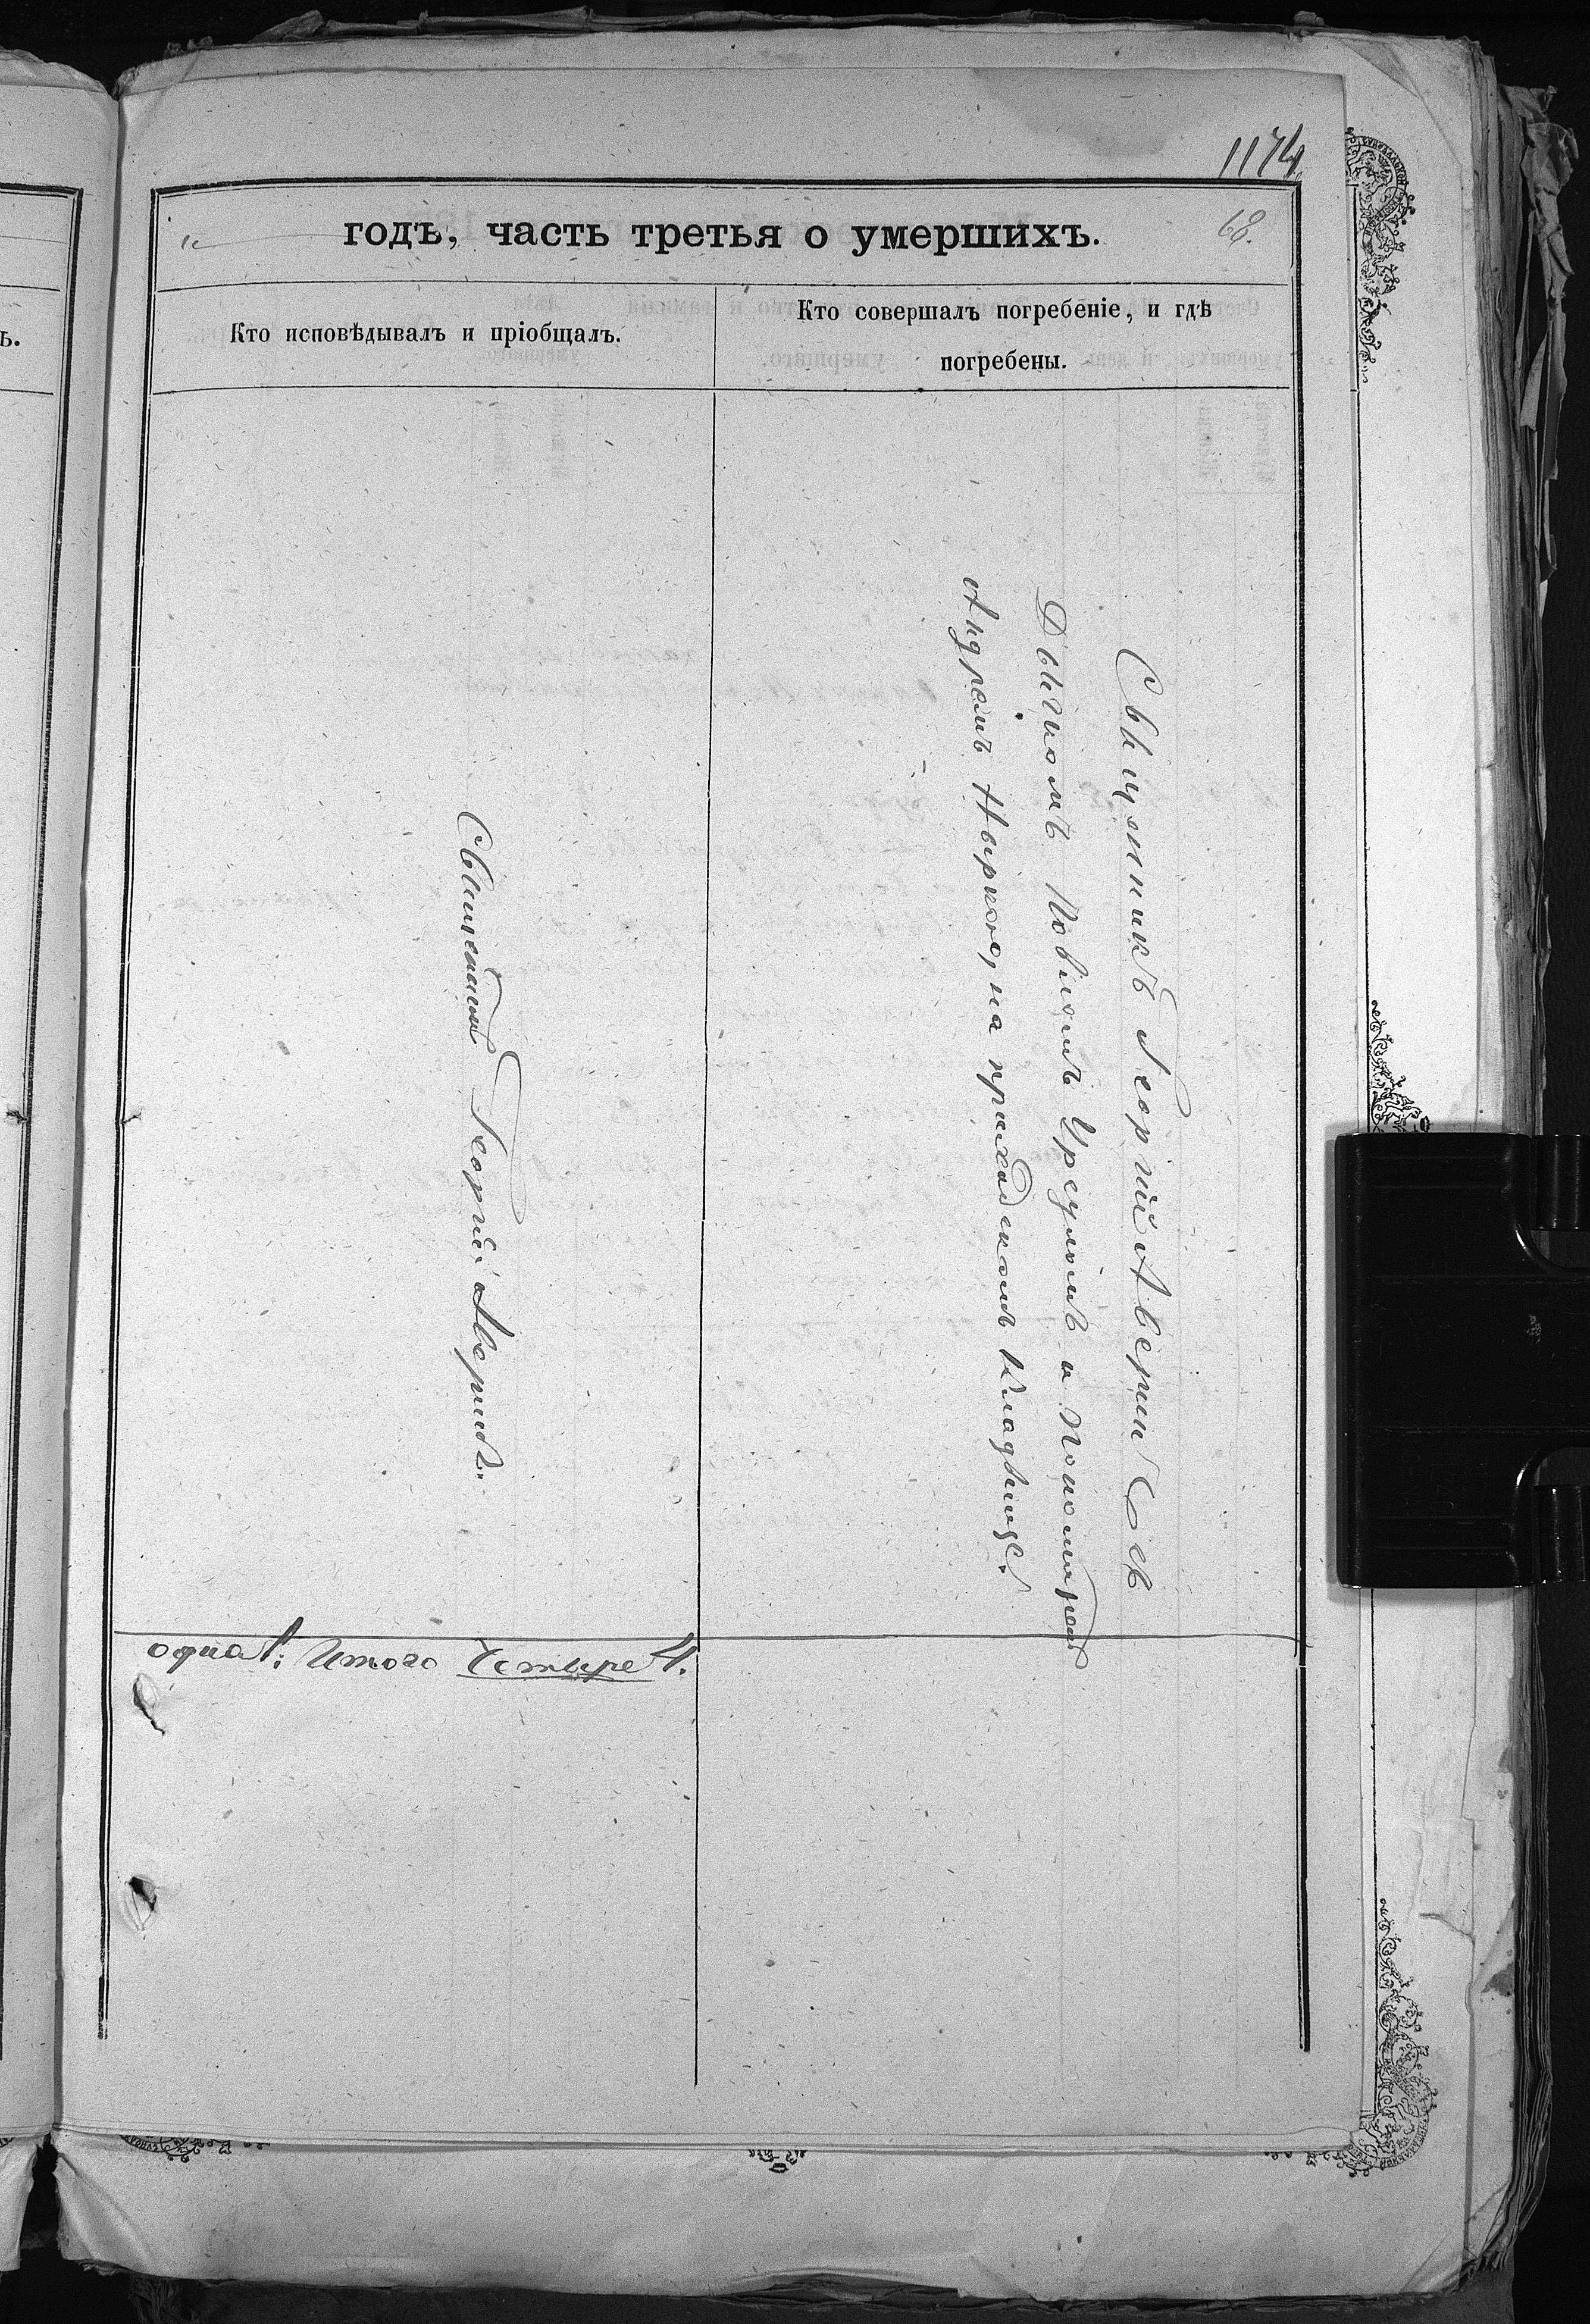 1174.
годъ, часть третья о умершихъ.
68.
Кто исповѣдывалъ и пріобщалъ.
Кто совершалъ погребеніе, и гдѣ
погребены.
Священникъ Георгій Аверинъ.
Священникъ Георгій Аверинъ Съ
Дьячкомъ и Пономаремъ
Андреемъ на приходскомъ кладбищѣ.
одна 1. Итого Четыре 4.